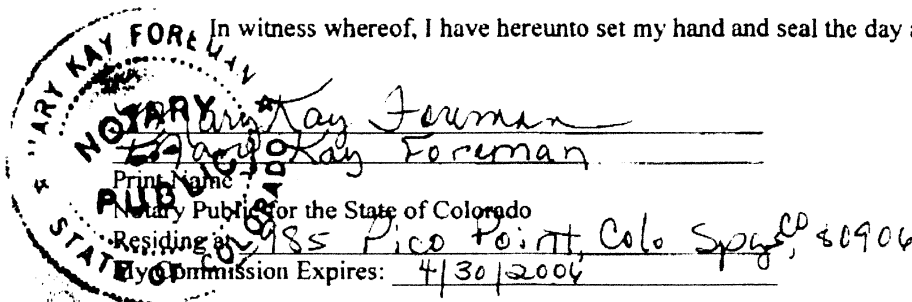 In witness whereof, I have hereunto set my hand and seal the day
Mary Kay Foreman
Mary Kay Foreman
Print Name
Notary Public for the State of Colorado
Residing at 985 Pico Point, Colo Spgs, CO, 80906
My Commission Expires: 4/30/2006
ARY KAY FOREMAN
NOTARY
PUBLIC
STATE OF COLORADO